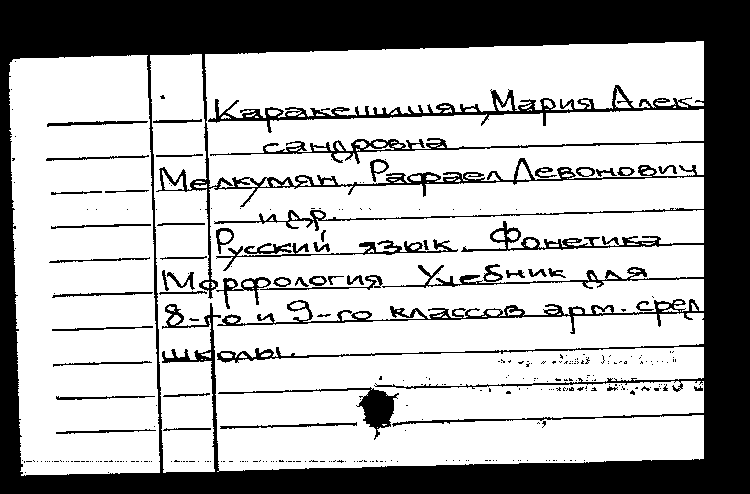 Каракешишян, Мария Алек-
сандровна
Мелкумян, Рафаел Левонович
и др.
Русский язык. Фонетика
Морфология Учебник для
8-го и 9-го классов арм. сред.
школы.